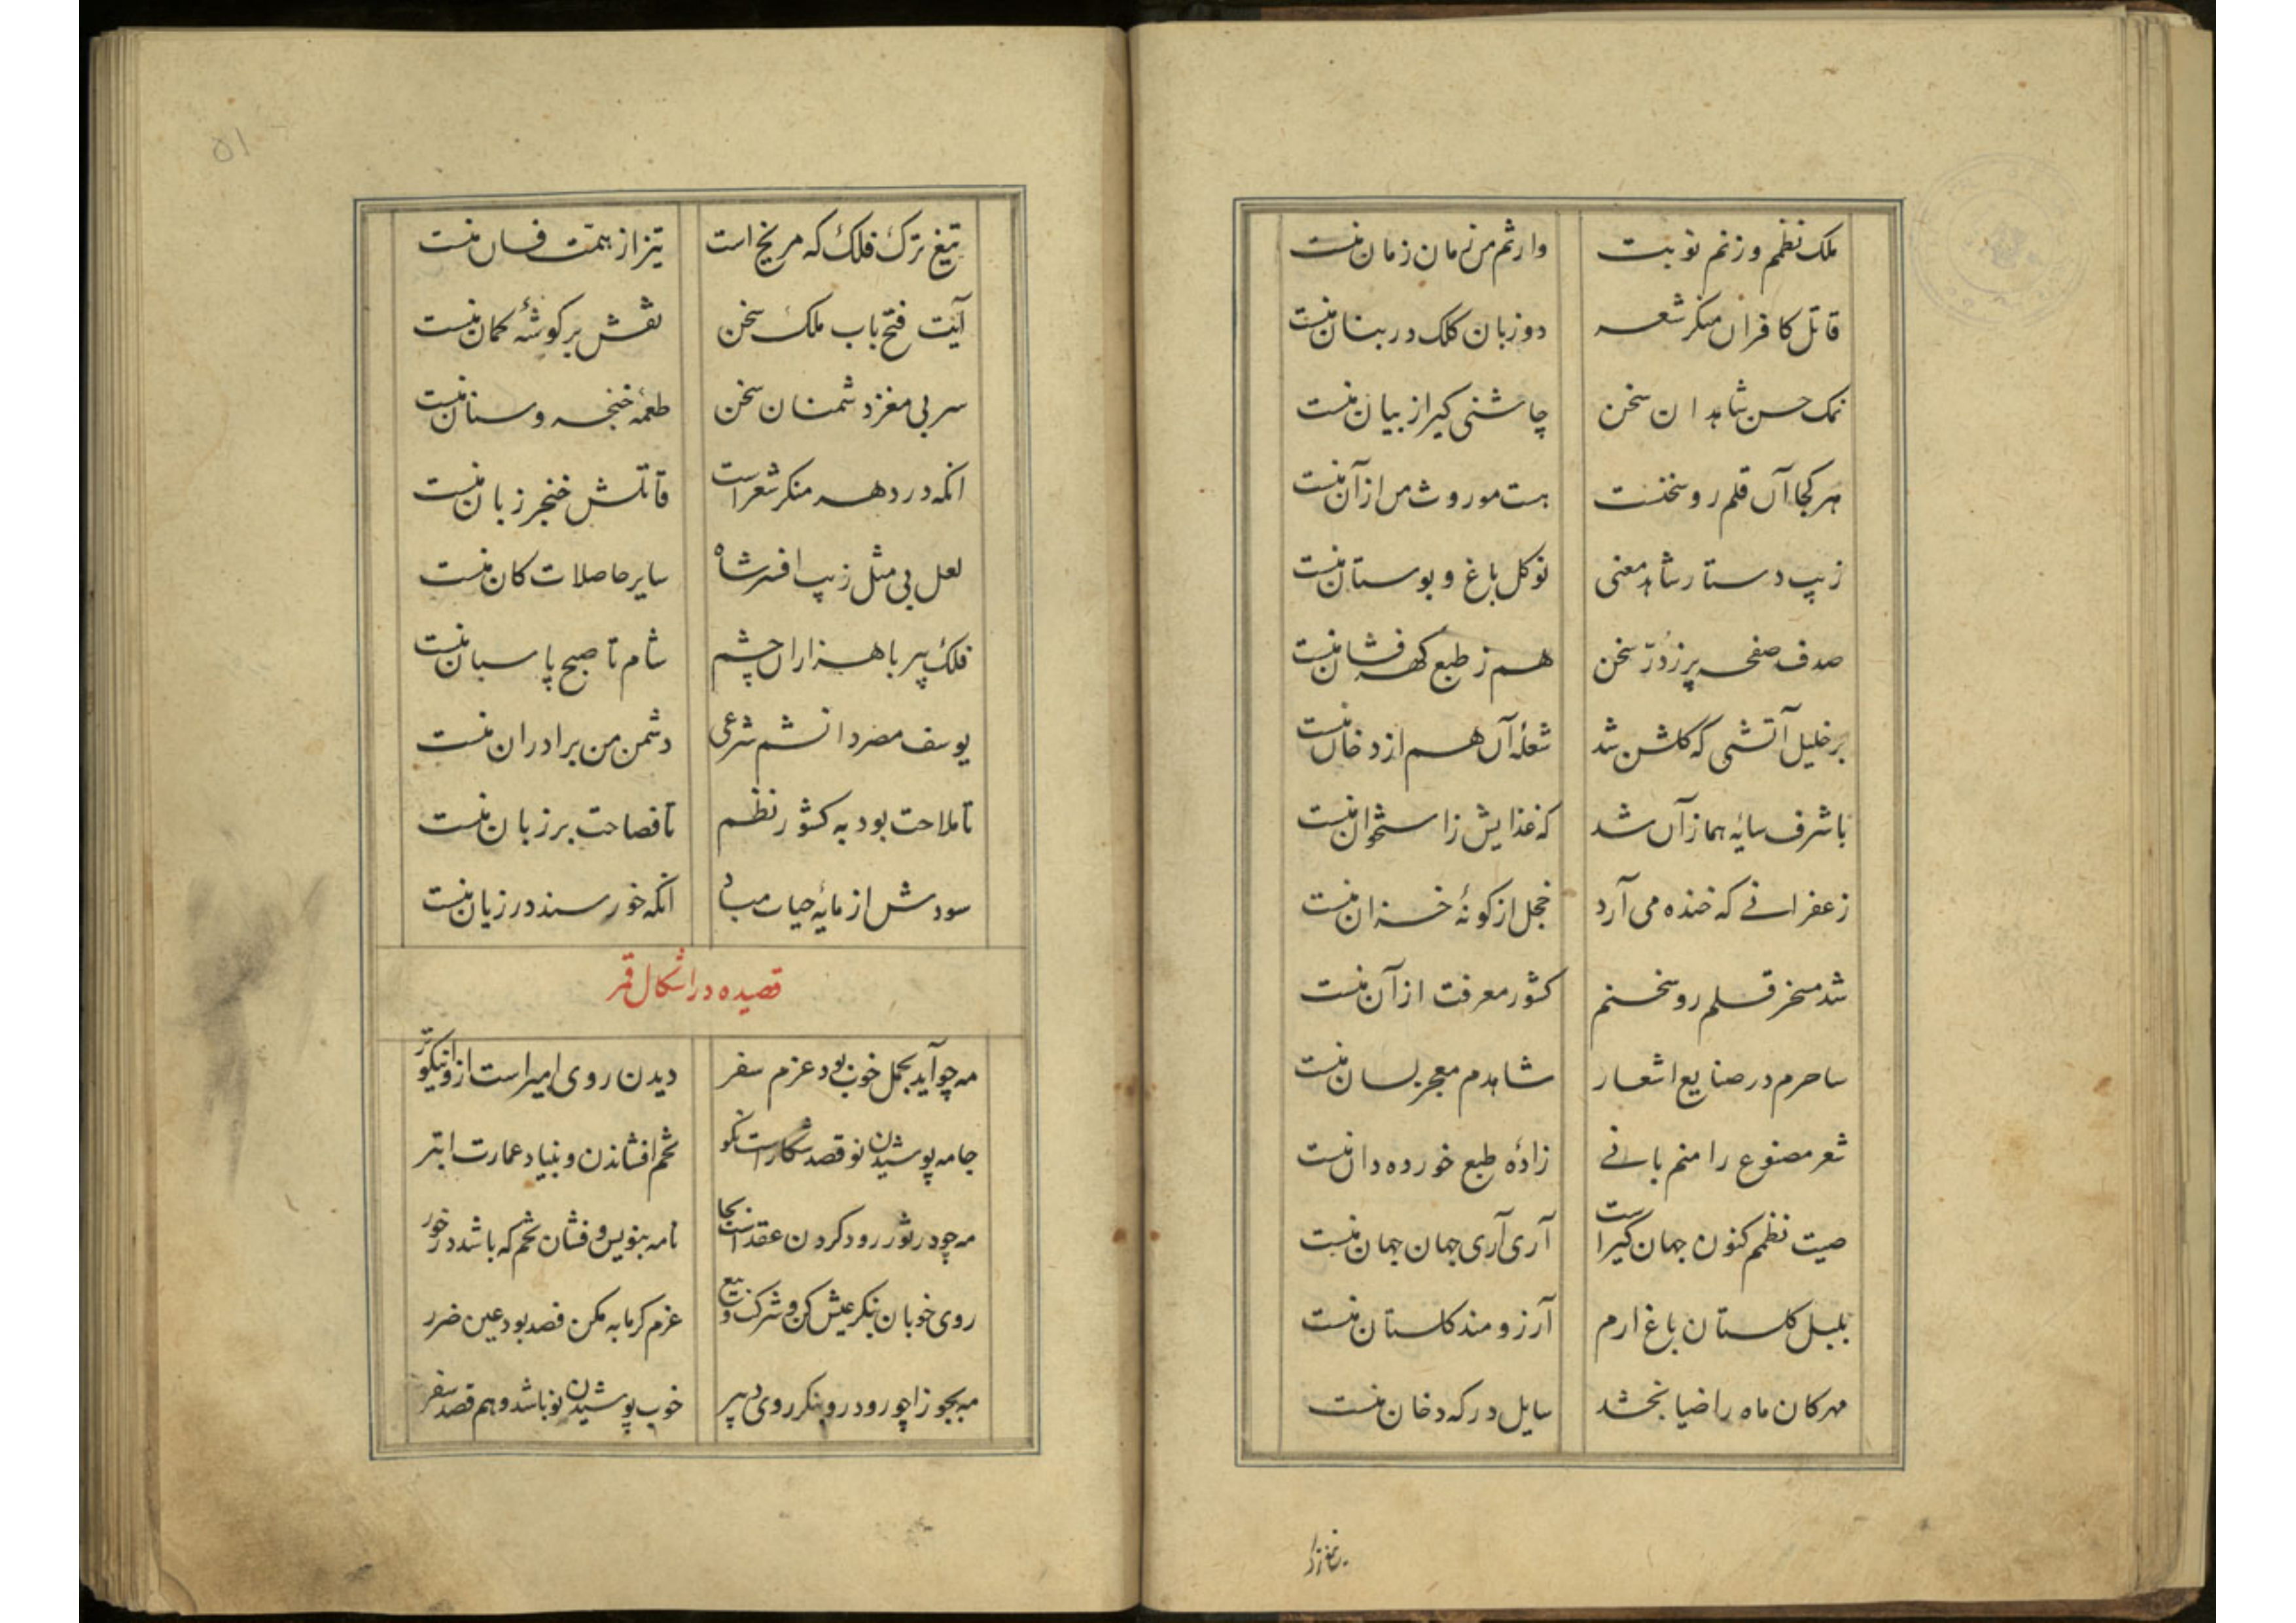 ملک نظمم و زنم نوبت وارثم من زمان زمان منست
قاتل کافران منکر شعر دو زبان کلک در بنان منست
نمک حسن شاهدان سخن چاشنی کیر از بیان منست
هر کجا آن قلم رو سخنست هست موروث من از آن منست
زیب دستار شاهد معنی نوکل باغ و بوستان منست
صدف صفحه پر ز دُرّ سخن هم ز طبع کهر فشان منست
بر خلیل آتشی که کلشن شد شعلهٔ آن هم از دخان منست
با شرف سایهٔ هما زآن شد که غذایش ز استخوان منست
زعفرانی که خنده می آرد خجل از کونهٔ خزان منست
شد مسخر قلم رو سخنم کشور معرفت از آن منست
ساحرم در صنایع اشعار شاهدم معجز لسان منست
شعر مصنوع را منم بانی زادهٔ طبع خورده دان منست
صیت نظمم کنون جهان کیر است آری آری جهان جهان منست
بلبل کلستان باغ ارم آرزومند کلستان منست
مهر کان ماه را ضیا بخشد سایل درکه دخان منست
۵۱
تیغ ترک فلک که مریخ است تیز از همّت فسان منست
آیت فتح باب ملک سخن نقش بر کوشهٔ کمان منست
سر بی مغز دشمنان سخن طعمهٔ خنجر و سنان منست
انکه در دهر منکر شعر است قاتلش خنجر زبان منست
لعل بی مثل زیب افسر شاه سایر حاصلات کان منست
فلک پیر با هزاران چشم شام تا صبح پاسبان منست
یوسف مصر دانشم شرعی دشمن من برادران منست
تا ملاحت بود به کشور نظم تا فصاحت بر زبان منست
سودش از مایهٔ حیات مباد انکه خورسند در زیان منست
قصیده در اشکال قمر
مه چو آید بحمل خوب بود عزم سفر دیدن روی امیر است ازو نیکوتر
جامه پوشیدن نو قصد شکار است نکو تخم افشاندن و بنیاد عمارت ابتر
مه چو در ثور رود کردن عقد است بجا نامه بنویس و فشان تخم که باشد در خور
روی خوبان بنکر عیش کن و شرکت و بیع عزم کرمابه مکن فصد بود عین ضرر
مه بجوزا چو رود رو بنکر روی دبیر خوب پوشیدن نو باشد و هم قصد سفر